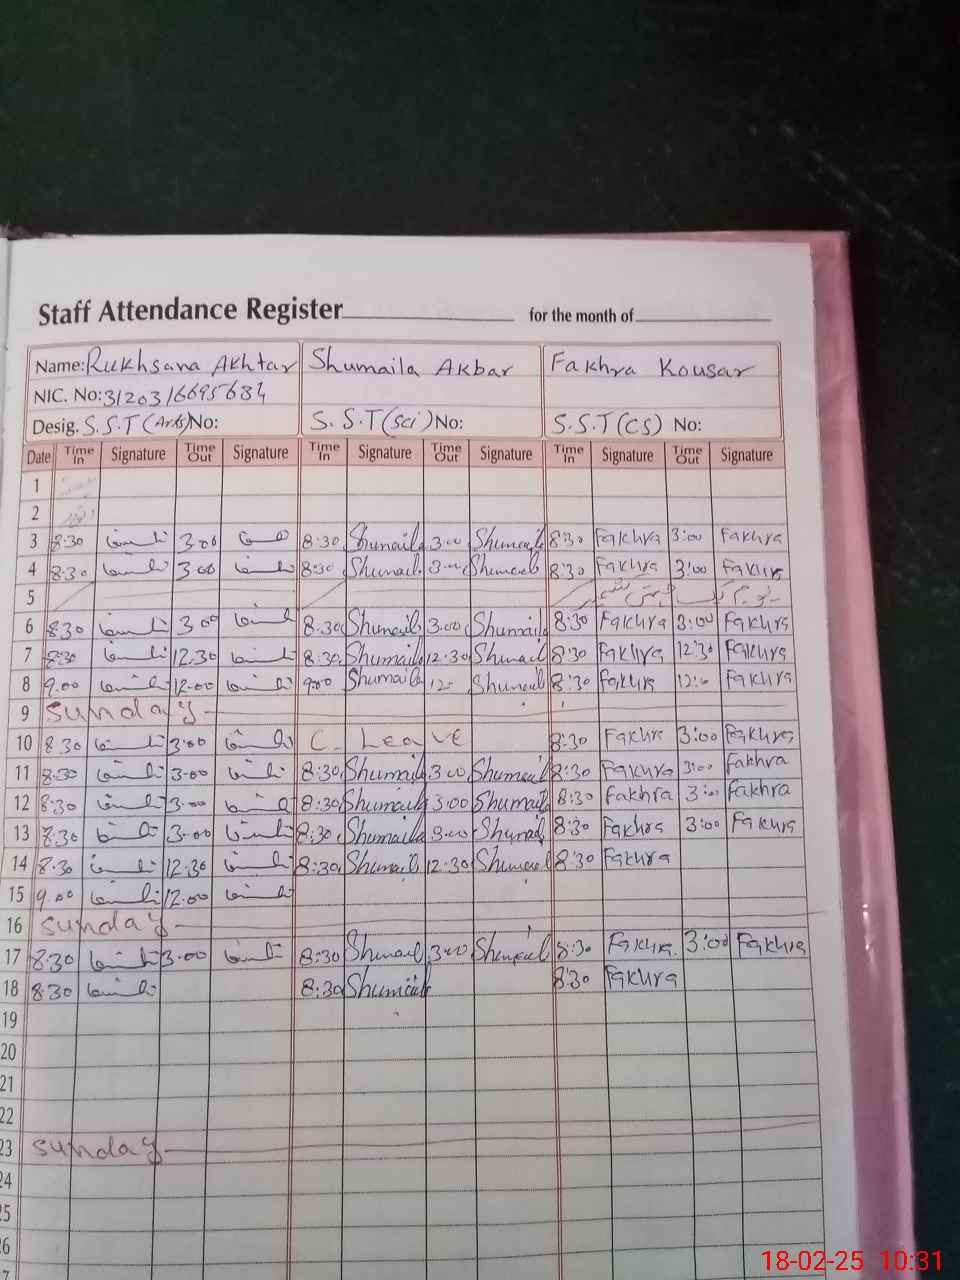 Staff Attendance Register for the month of
Name: Rukhsana Akhtar Shumaila Akbar Fakhra Kousar
NIC. No: 31203/6695634
Desig. S.S.T (Arts) No: S.S.T (Sci) No: S.S.T (CS) No:
Date Time In Signature Time Out Signature Time In Signature Time Out Signature Time In Signature Time Out Signature
1
2 اتوار
3 8:30 3:00 8:30 Shumaila 3:00 Shumaila 8:30 Fakhra 3:00 Fakhra
4 8:30 3:00 8:30 Shumaila 3:00 Shumaila 8:30 Fakhra 3:00 Fakhra
5 یوم یکجہتی کشمیر
6 8:30 3:00 8:30 Shumaila 3:00 Shumaila 8:30 Fakhra 3:00 Fakhra
7 8:30 12:30 8:30 Shumaila 12:30 Shumaila 8:30 Fakhra 12:30 Fakhra
8 9:00 12:00 9:00 Shumaila 12:- Shumaila 8:30 Fakhra 12:0 Fakhra
9 Sunday
10 8:30 3:00 C. Leave 8:30 Fakhra 3:00 Fakhra
11 8:30 3:00 8:30 Shumaila 3:00 Shumaila 8:30 Fakhra 3:00 Fakhra
12 8:30 3:00 8:30 Shumaila 3:00 Shumaila 8:30 Fakhra 3:00 Fakhra
13 8:30 3:00 8:30 Shumaila 3:00 Shumaila 8:30 Fakhra 3:00 Fakhra
14 8:30 12:30 8:30 Shumaila 12:30 Shumaila 8:30 Fakhra
15 9:00 12:00
16 Sunday
17 8:30 3:00 8:30 Shumaila 3:00 Shumaila 8:30 Fakhra 3:00 Fakhra
18 8:30 8:30 Shumaila 8:30 Fakhra
19
20
21
22
23 Sunday
24
25
26
18-02-25 10:31